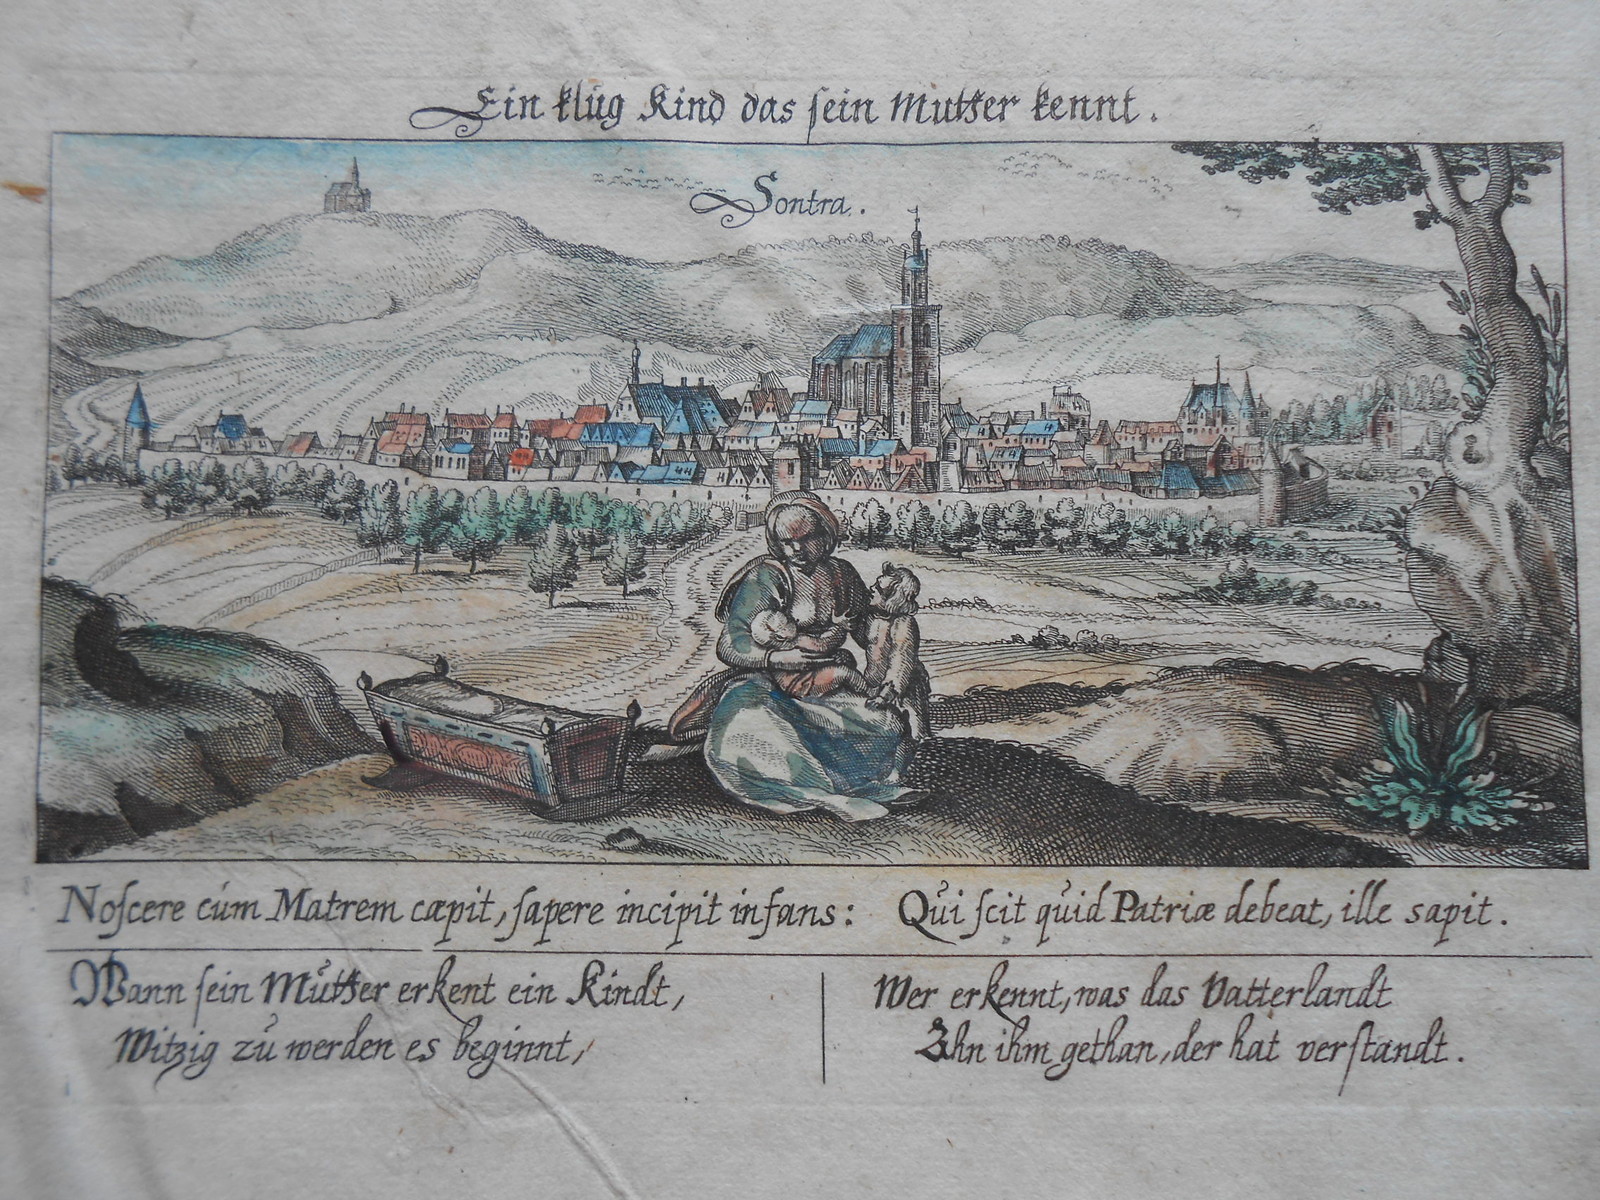 Ein klůg Kind das ſein Mutter kennt.
Sontra.
Noſcere cúm Matrem cæpit, ſapere incipit infans: Qůi ſcit qůid Patriæ debeat, ille sapit.
Wann ſein Můtter erkent ein Kindt,
Witzig zů werden es beginnt,
Wer erkennt, was das Vatterlandt
Ahn ihm gethan, der hat verſtandt.